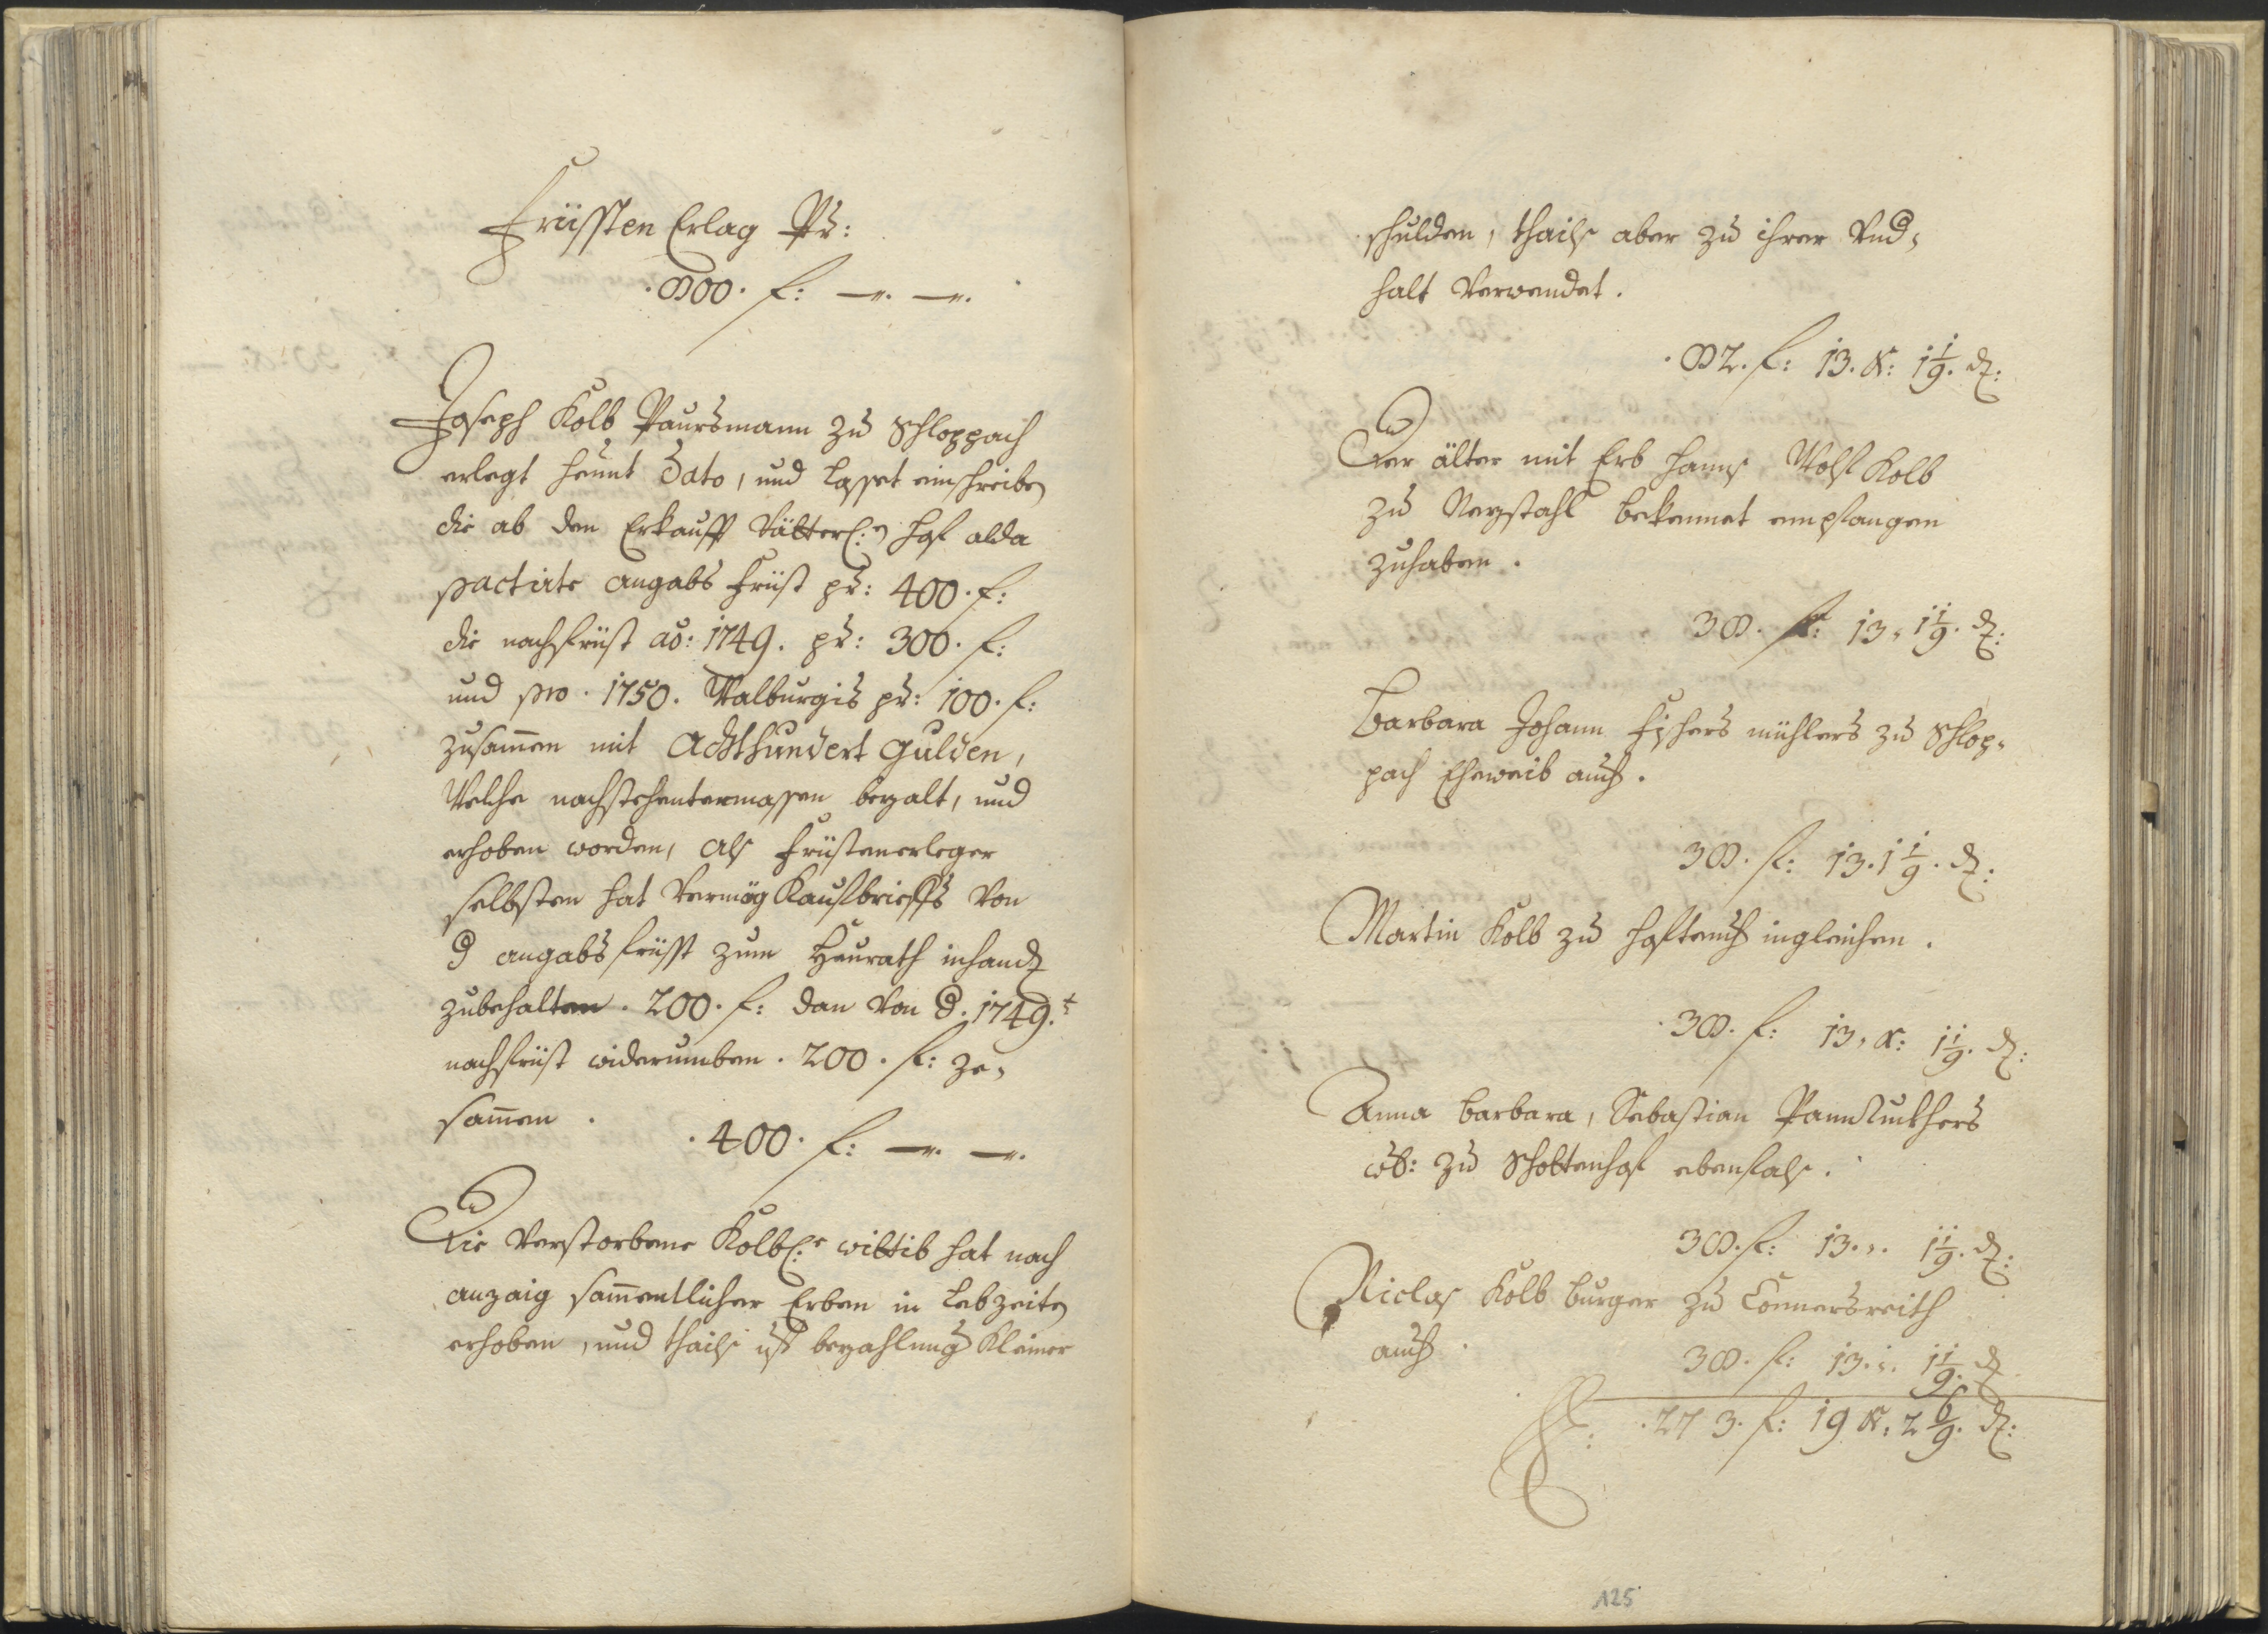 Früssten Erlag Pr:
.800. f: —. —.
Joseph Kolb Paursmann zu Schloppach
erlegt heunt Dato, und lasset einschreiben
die ab den Erkaufft Vätterl:n hof alda
pactirte angabs früst pr: 400. f:
die nachfrüst ao: 1749. pr: 300. f:
und pro. 1750. Walburgis pr: 100. f:
zusam̄en mit Achthundert Gulden,
Welche nachstehentermassen bezalt, und
erhoben worden, als früstenerleger
selbsten hat Vermög Kaufbrieffs Von
d angabs früsst zum Heurath inhandt
zubehalten. 200. f: dan Von d. 1749.t
nachfrüst widerumben. 200. f: ze,
sam̄en.
.400. f: —. —.
Die Verstorbene Kolbl:e wittib hat nach
anzaig sam̄entlicher Erben in lebzeiten
erhoben, und thails uf bezahlung kleiner
schulden, thails aber zu ihrer Und,
halt Verwendet.
.82. f: 13. kr: 1 1/9. d:
Der älter mit Erb Hanns Wolf Kolb
zu Neystahl bekennet empfangen
zuhaben.
38. f: 13. 1 1/9. d:
Barbara Johann Fischers mühlers zu Schlop,
pach Eheweib auch.
38. f: 13. 1 1/9. d:
Martin Kolb zu hofteich ingleichen.
.38. f: 13. kr: 1 1/9. d:
Anna Barbara, Sebastian
wb: zu Schottenhof ebenfals.
38. f: 13. „. 1 1/9. d:
Niclas Kolb burger zu Connersreith
auch.
38. f: 13. „. 1 1/9. d
.273. f: 19 kr. 2 6/9. d:
125